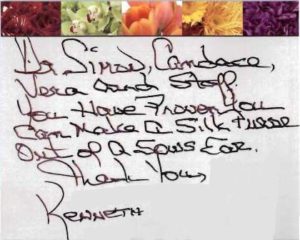 Dr. Simon, Candace,
Vera and Staff.
You Have Proven You
Can Make A Silk Purse
Out of A Sows Ear.
Thank You,
Kenneth